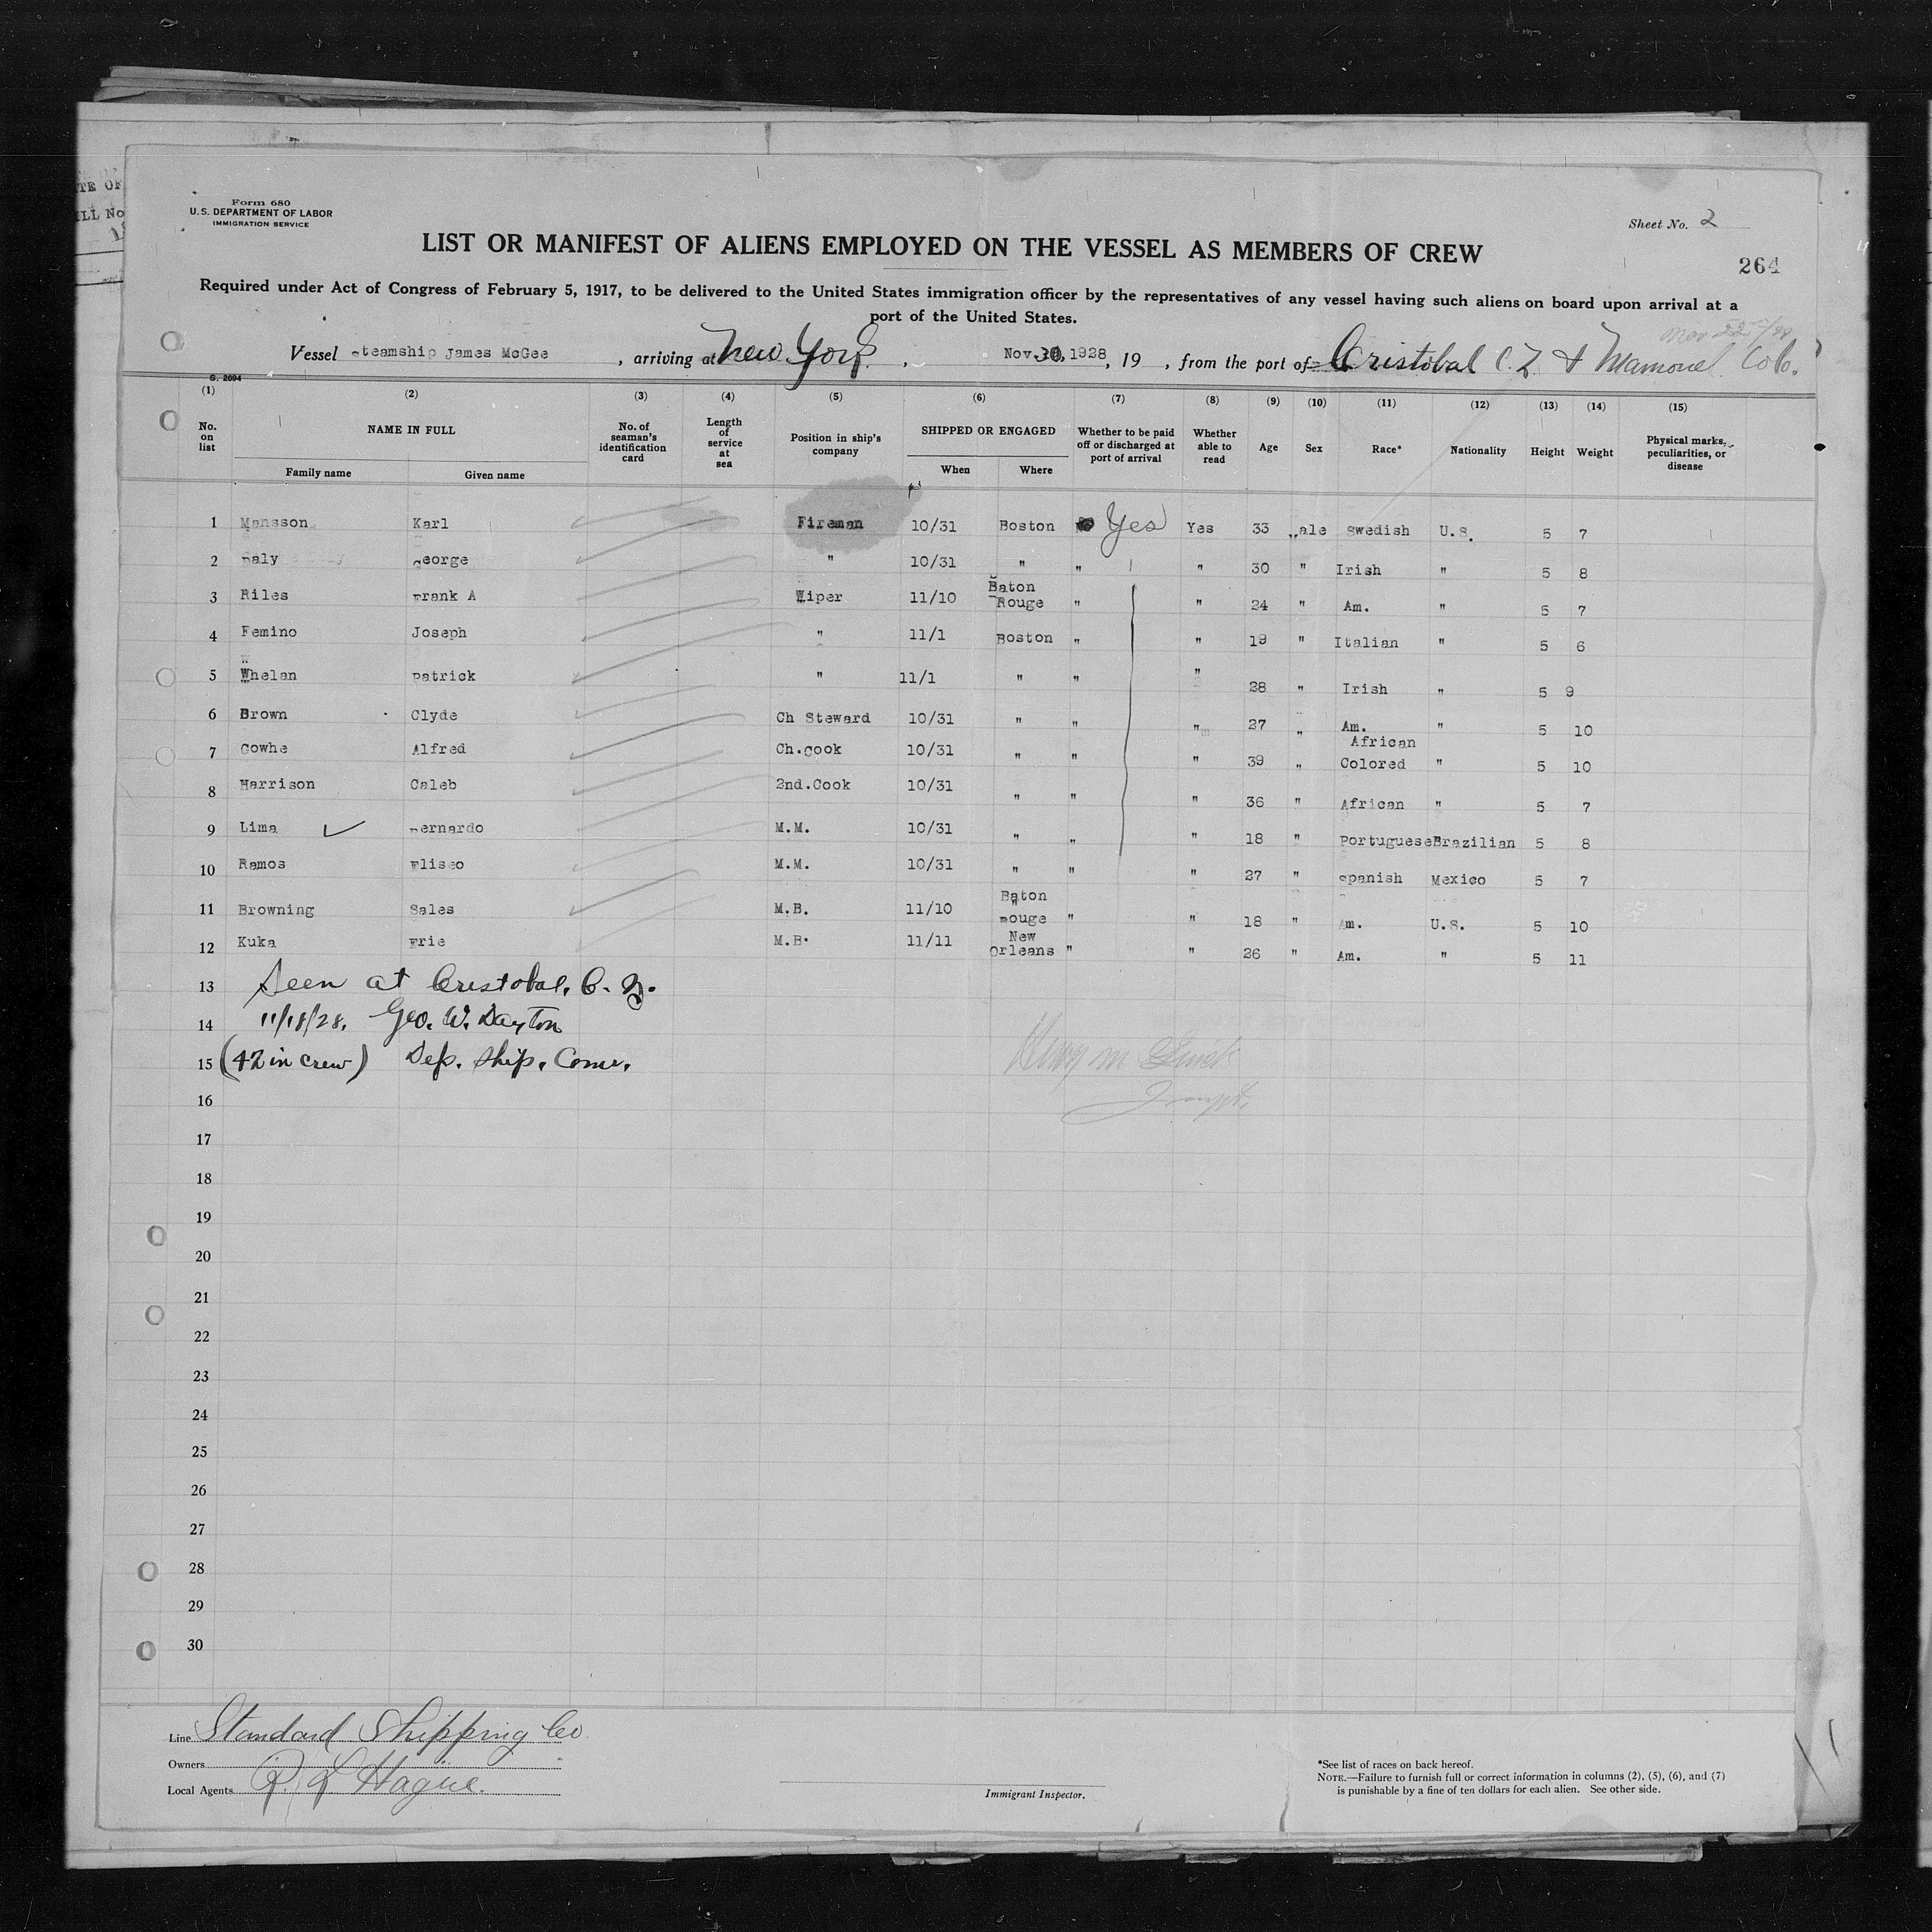 TE OF
ILL No
Form 680
U. S. DEPARTMENT OF LABOR
IMMIGRATION SERVICE
Sheet No. 2
LIST OR MANIFEST OF ALIENS EMPLOYED ON THE VESSEL AS MEMBERS OF CREW
264
Required under Act of Congress of February 5, 1917, to be delivered to the United States immigration officer by the representatives of any vessel having such aliens on board upon arrival at a
port of the United States.
Vessel Steamship James McGee , arriving at New York , Nov. 30, 1928 , 19 , from the port of Cristobal C.Z. & Mamonel Colo.
S. 2094
(1) (2) (3) (4) (5) (6) (7) (8) (9) (10) (11) (12) (13) (14) (15)
No. on list NAME IN FULL Family name Given name No. of seaman's identification card Length of service at sea Position in ship's company SHIPPED OR ENGAGED When Where Whether to be paid off or discharged at port of arrival Whether able to read Age Sex Race* Nationality Height Weight Physical marks, peculiarities, or disease
1 Mansson Karl Fireman 10/31 Boston Yes Yes 33 Male Swedish U.S. 5 7
2 Daly George " 10/31 " " " 30 " Irish " 5 8
3 Riles Frank A Wiper 11/10 Baton Rouge " " 24 " Am. " 5 7
4 Femino Joseph " 11/1 Boston " " 19 " Italian " 5 6
5 Whelan Patrick " 11/1 " " " 28 " Irish " 5 9
6 Brown Clyde Ch Steward 10/31 " " " 27 " Am. " 5 10
7 Gowhe Alfred Ch.cook 10/31 " " " 39 " African Colored " 5 10
8 Harrison Caleb 2nd.Cook 10/31 " " " 36 " African " 5 7
9 Lima Bernardo M.M. 10/31 " " " 18 " Portuguese Brazilian 5 8
10 Ramos Eliseo M.M. 10/31 " " " 27 " Spanish Mexico 5 7
11 Browning Sales M.B. 11/10 Baton Rouge " " 18 " Am. U.S. 5 10
12 Kuka Erie M.B. 11/11 New Orleans " " 26 " Am. " 5 11
13 Seen at Cristobal, C. Z.
14 11/18/28. Geo. W. Dayton
15 (42 in crew) Dep. Ship. Comr.
16
17
18
19
20
21
22
23
24
25
26
27
28
29
30
Line Standard Shipping Co
Owners
Local Agents R. L Hague.
Immigrant Inspector.
*See list of races on back hereof.
NOTE.—Failure to furnish full or correct information in columns (2), (5), (6), and (7)
is punishable by a fine of ten dollars for each alien. See other side.